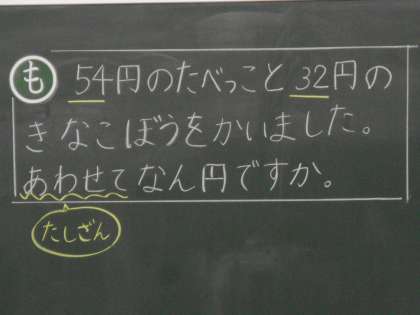 も 54円のたべっこと32円の
きなこぼうをかいました。
あわせてなん円ですか。
たしざん